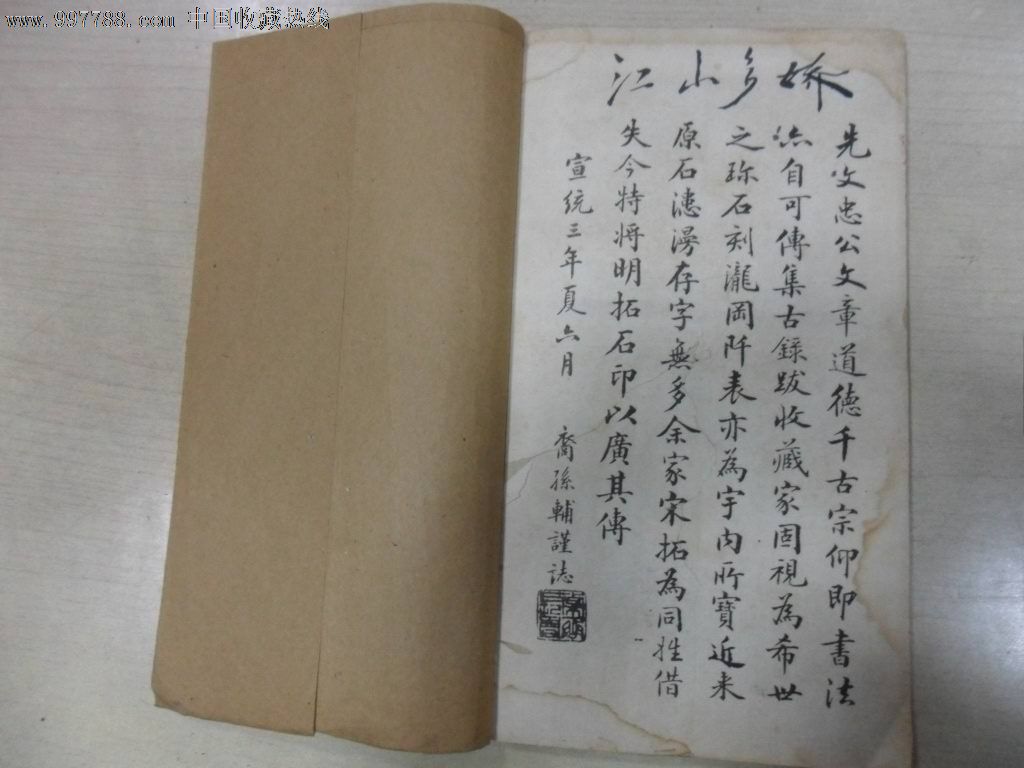 www.997788.com 中国收藏热线
江山多娇
先文忠公文章道德千古宗仰即書法
亦自可傳集古錄跋收藏家固視為希世
之珎石刻瀧岡阡表亦為宇内所寶近来
原石漶漫存字無多余家宋拓為同姓借
失今特将明拓石印以廣其傳
宣統三年夏六月 裔孫輔謹誌